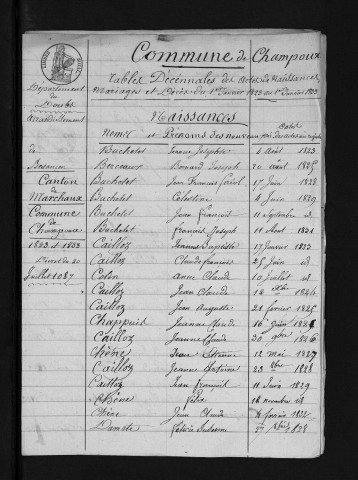 Commune de Champoux
Tables Décennales des Actes de Naissances
Mariages et Décès du 1er Janvier 1823 au 1er Janvier 1833.
Département
du
Doubs
Arrondissement
de
Besançon
Canton
de
Marchaux
Commune
de
Champoux
1823 à 1833
Décret du 20
Juillet 1807
Naissances
Noms et Prénoms des nouveau nés
Bachelet Jeanne 4 Août 1823
Beccaux Bernard Joseph 20 août 1825
Bachelet Jean François 17 Juin 1828
Bachelet Célestine 4 Juin 1829
Bachelet Jean François 11 Septembre id
Bachelet François Joseph 11 Août 1831
Cailloz Jeanne Baptiste 17 Janvier 1823
Cailloz Claude François 25 Juin id
Colon Anne Claude 10 Juillet id
Cailloz Jean Claude 14 1824
Cailloz Jean Auguste 21 février 1825
Chappuis Jeanne Claude 16 Juin
Cailloz Jeanne Claude 30 1826
Chêne Jeanne Etienne 12 Mai 1827
Cailloz Jeanne Antoine 23 8bre 1828
Cailloz Jean François 11 Juin 1829
Chêne Félix 18 novembre id
Chêne Jean Claude 4 février 1832